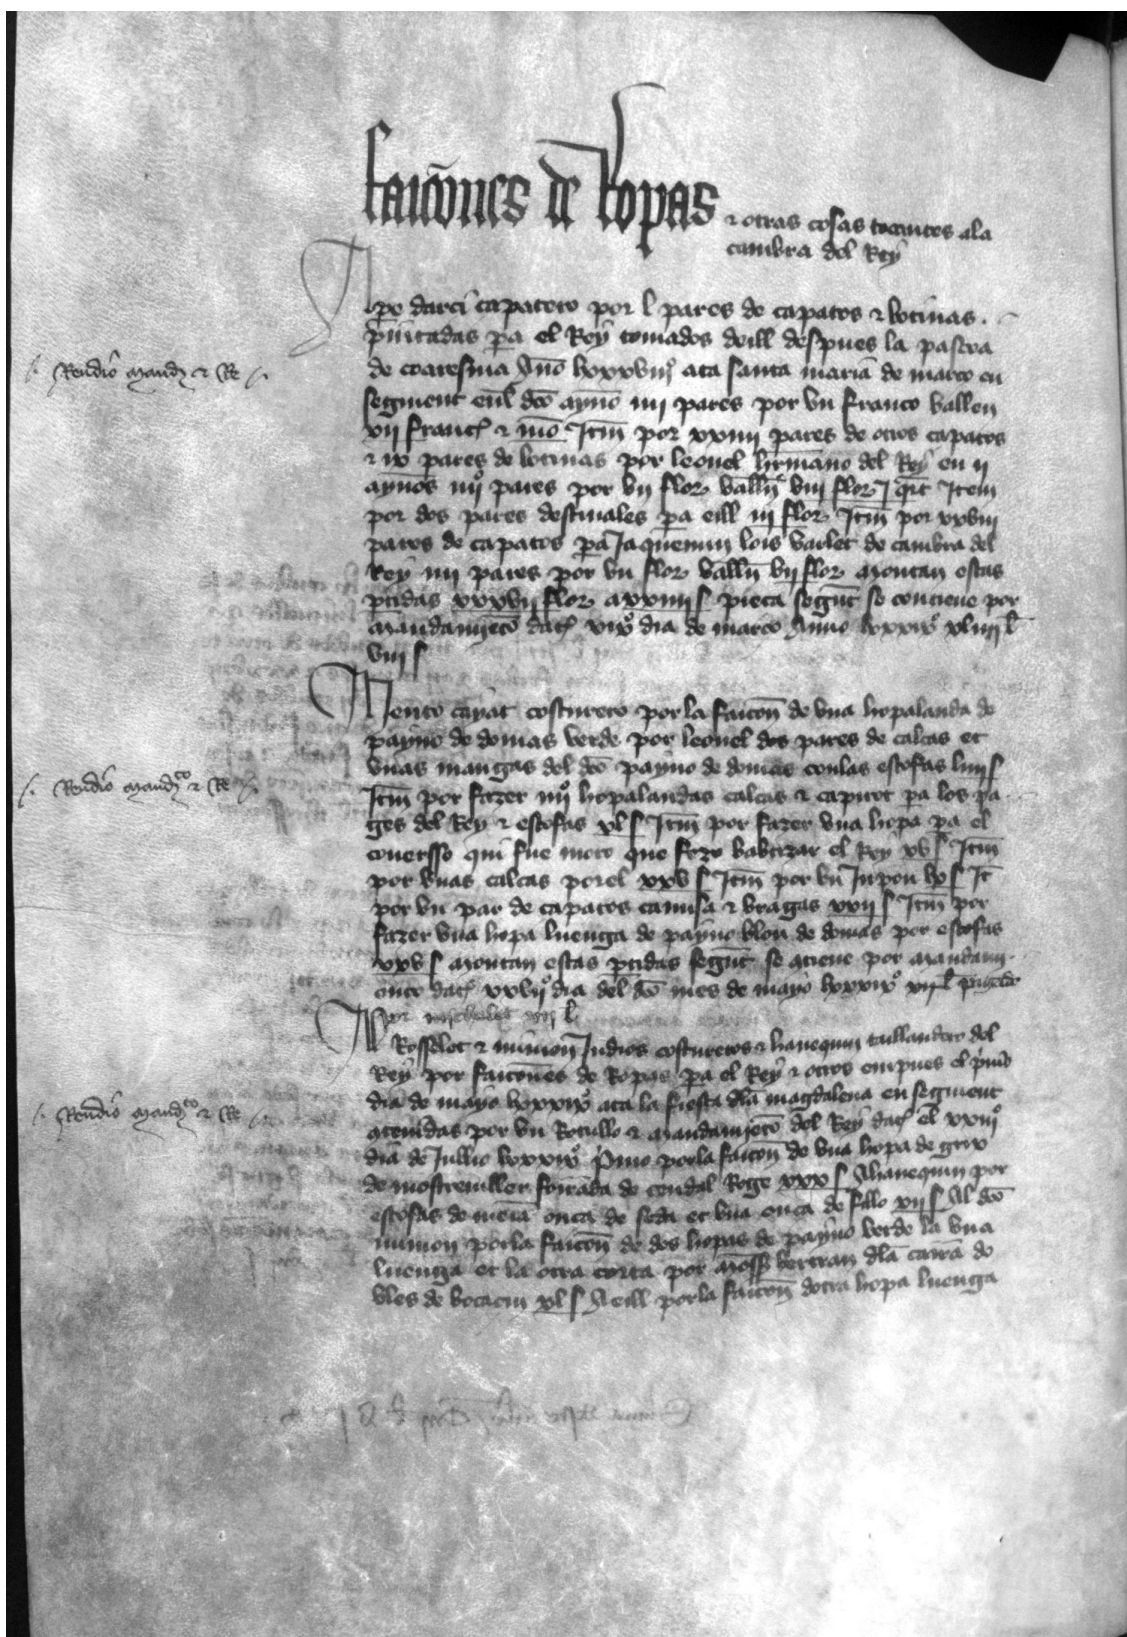 faicones de Ropas
⁊ otras cosas tocantes ala
cambra del Rey
A pe darci capatero por l pares de capatos ⁊ botinas
pintadas pa el Rey tomados deill despues la pascoa
Rendio mand ⁊ Re
de coaresma Ano lxxxviii ata santa maria de março en
segment enl dco aynno iiii pares por vn franco vallen
vii franc ⁊ mo Itm por xxiiii pares de otros capatos
⁊ ix pares de botinas por leonel hrmano del Rey en ii
aynnos iiiio pares por vn flor valln viii flor I qrt Item
por dos pares destiuales pa eill iii flor Itm por xxviii
pares de capatos pa Jaquemin lois varlet de cambra del
Rey iiii pares por vn flor valln vii flor montan estas
ptidas xxxvii flor a xxiiii s pieca segunt se contiene por
mandamieto dat xixo dia de março Anno lxxxixo xliiii l
viii s
Nento cayat costurero por la faicon de vna hopalanda de
paynno de domas verde por leonel dos pares de calcas et
Rendio mandto ⁊ Re
vnas mangas del dco paynno de domas conlas estofas liiii s
Itm por fazer iiiio hopalandas calcas ⁊ capirot pa los pa
ges del Rey ⁊ estofas xl s Itm por fazer vna hopa pa el
conersso qui fue moro que fezo babtizar el Rey xv s Itm
por vnas calcas porel xxv s Itm por vn Jupon lx s It
por vn par de capatos camisa ⁊ bragas xxii s Itm por
fazer vna hopa luenga de paynno blou de domas por estofas
xxv s montan estas ptidas segunt se qtiene por mandami
ento dat xxviio dia del dco mes de mayo lxxxixo
por michelet l
Rosselot ⁊ nimion Judios costureros ⁊ hanequin taillandero del
Rey por faicones de Ropas pa el Rey ⁊ otros empues el pmo
Rendio mandto ⁊ Re
dia de mayo lxxxixo ata la fiesta dla magdalena en segment
qtenidas por vn Rotullo ⁊ mandamieto del Rey dat el xxiiio
dia de Jullio lxxxixo Pmo porla faicon de vna hopa de grix
de mostreuiller forrada de cendal Roge xxx s A hanequin por
estofas de meia onca de seda et vna onca de fillo xii s Al dco
nimion porla faicon de dos hopas de paynno verde la vna
luenga et la otra corta por moss bertran dla carra do
bles de bocacin xl s A eill porla faicon dotra hopa luenga